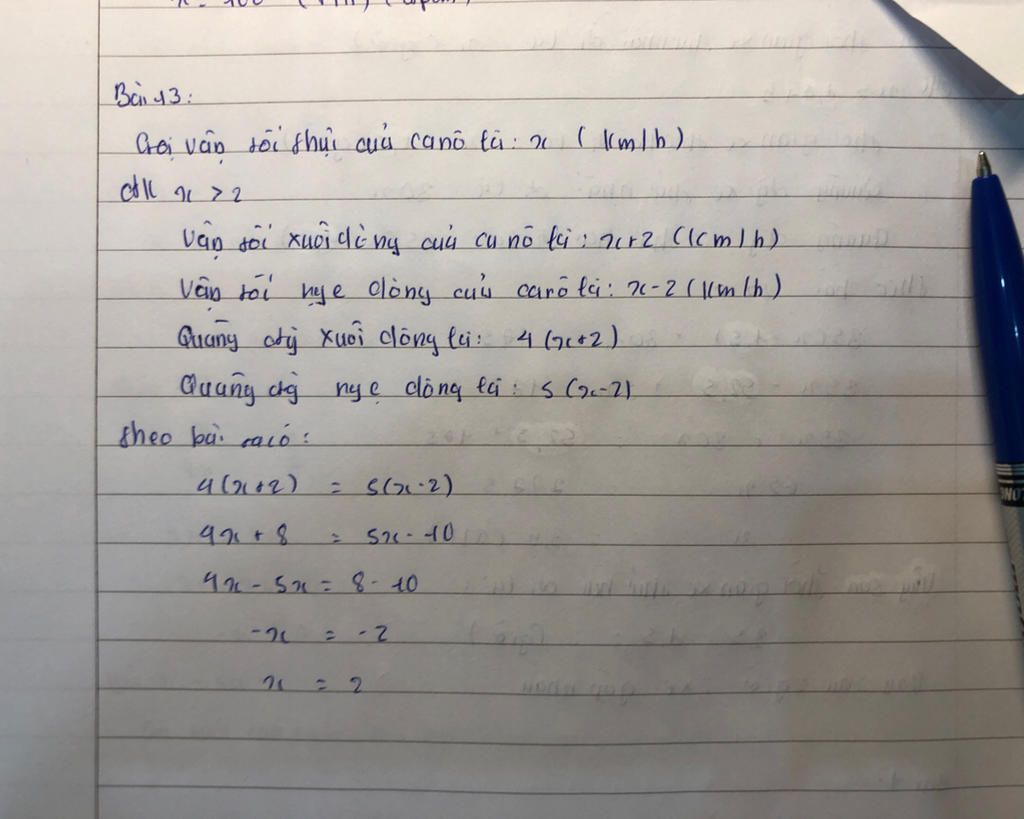 Bài 13:
Gọi vận tốc thực của canô là: x (km/h)
đk x > 2
Vận tốc xuôi dòng của ca nô là: x+2 (km/h)
Vận tốc ngc dòng của canô là: x-2 (km/h)
Quãng đg xuôi dòng là: 4(x+2)
Quãng đg ngc dòng là: 5(x-2)
theo bài ra có:
4(x+2) = 5(x-2)
4x + 8 = 5x - 10
4x - 5x = 8 - 10
-x = -2
x = 2